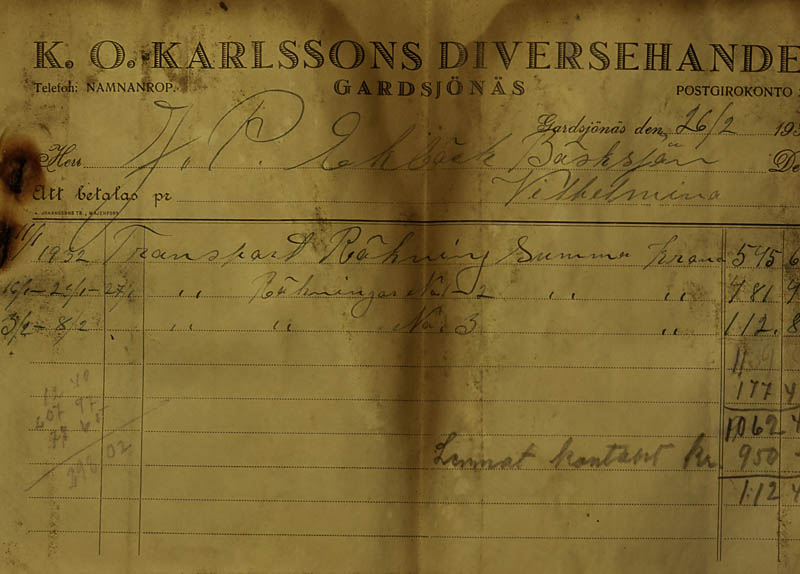 K. O. KARLSSONS DIVERSEHANDE
GARDSJÖNÄS
Telefon: NAMNANROP.
POSTGIROKONTO
Gardsjönäs den 26/2 193
Herr J. P. Ekbäck Bäsksjön De
Att betalas pr Vilhelmina
11/1 1932 Transport Räkning Summa Kronor 545 6
27/1 ,, Räkningar No 1-2 ,, ,, 481 9
3/2 - 8/2 ,, ,, No 3 ,, 112. 8
177 4
1062 4
Lämnat kontant Kr. 950 -
112 4